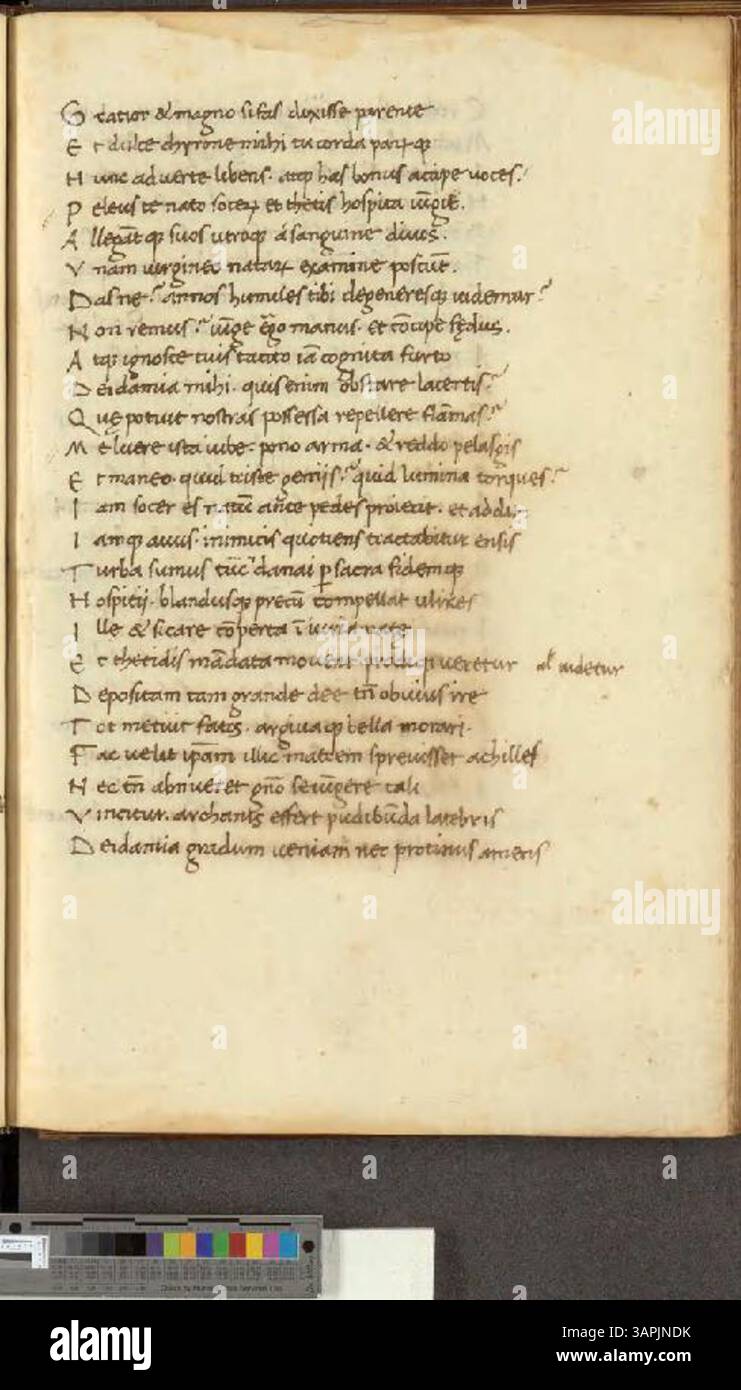 G ratior & magno si fas duxisse parente
E t dulce chyrone mihi tu corda parūqꝫ
H uuc aduerte libens. atqꝫ has bonus accipe uoces.
P eleus te nato socerꝝ et thetis hospita iūgit.
A llegātqꝫ suos utroqꝫ a sanguine diuos.
V nam uirgineo natarꝝ examine poscūt.
D as ne? annos humiles tibi degeneresqꝫ uidemur?
N on renuis? iūge ergo manus. et cōcipe fędus.
A tqꝫ ignosce tuis tacito iā cognita furto
D eidamia mihi. quis enim obstare lacertis?
Q uę potuit nostras possessa repellere flāmas?
M e luere ista iube. pono arma. & reddo pelasgis
E t maneo. quid triste gemis? quid lumina torques?
I am socer es natū ante pedes proiecit. et addit.
I amqꝫ auus. inimicis quotiens tractabitur ensis
T urba sumus tūc danai ꝑ sacra fidemqꝫ
H ospitii. blandusqꝫ precū compellat ulixes
I lle & si care cōperta iniuria nate
E t thetidis mādata mouent ueretur al uidetur
D epositam tam grande deę tn̄ obuius ire
T ot metuit fatis. argiuaqꝫ bella morari.
F ac uelit ipsam illic matrem spreuisset achilles
N ec tn̄ abnuere et gn̄o se iungere tali
V incitur. archanis effert pudibūda latebris
D eidamia gradum ueniam nec protinus amens
alamy
Image ID: 3APJNDK
www.alamy.com